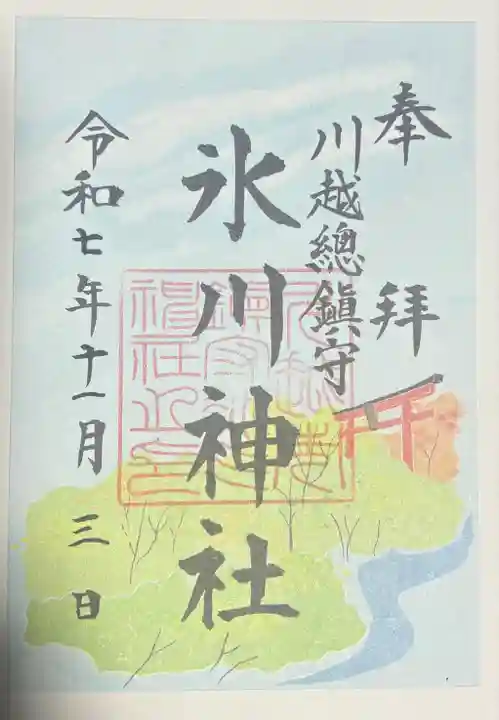 奉拜
川越總鎮守
氷川神社
令和七年十一月三日